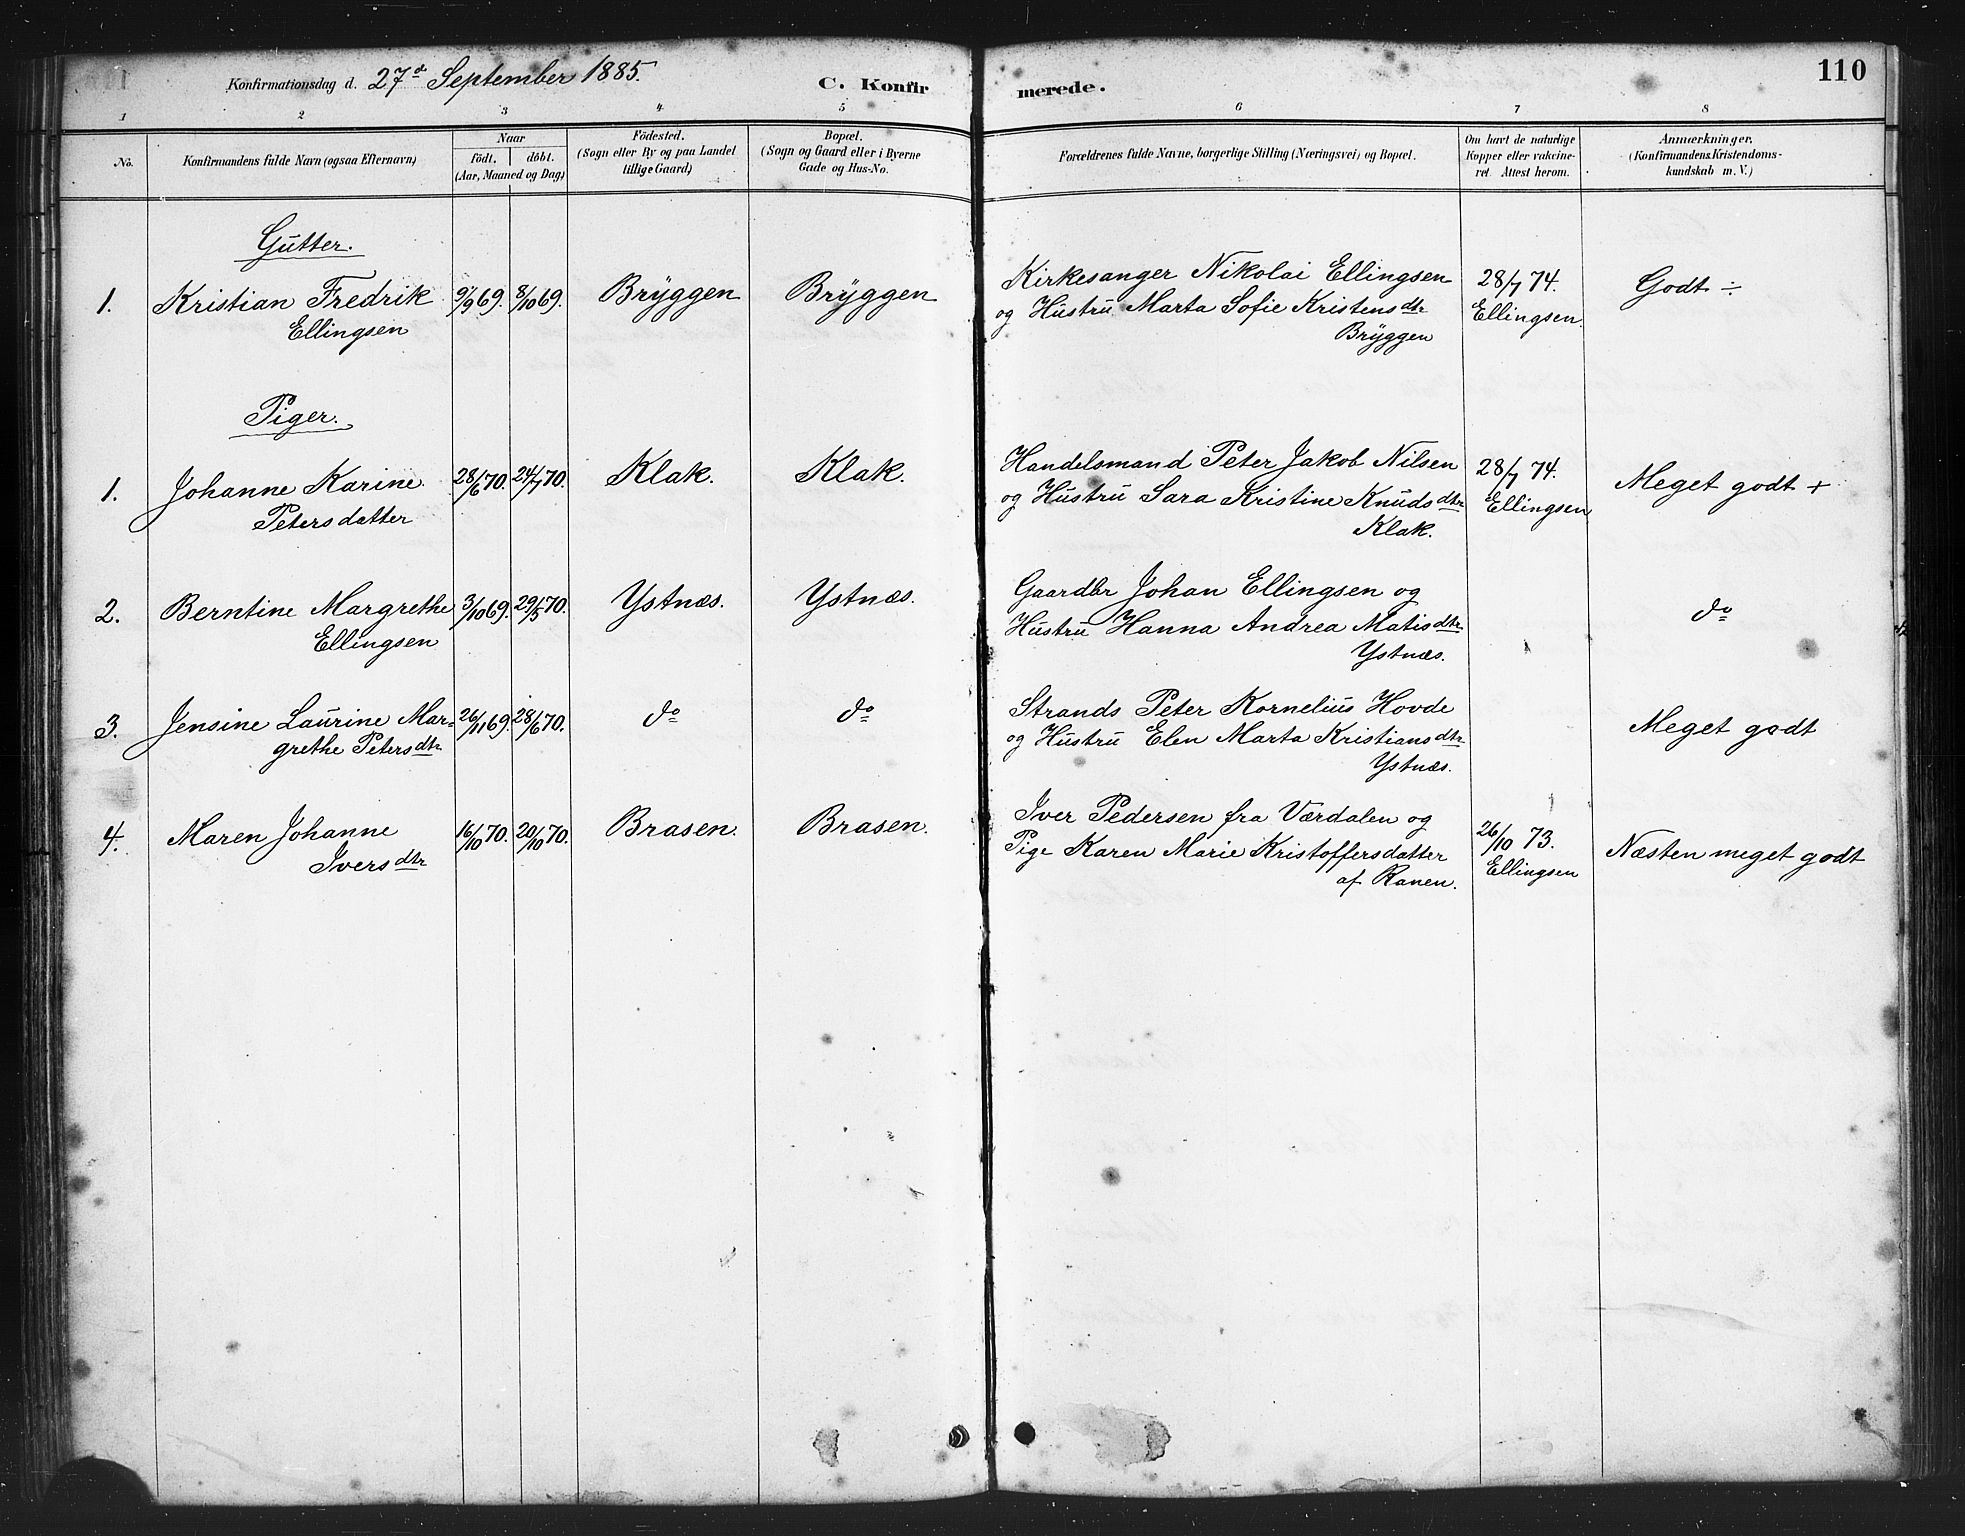 Konfirmationsdag d. 27d September 1885.
C. Konfirmerede.
110
1 2 3 4 5 6 7 8
No.
Konfirmandens fulde Navn (ogsaa Efternavn)
Naar
födt. döbt.
(Aar, Maaned og Dag)
Födested.
(Sogn eller By og paa Landet
tillige Gaard)
Bopæl.
(Sogn og Gaard eller i Byerne
Gade og Hus-No.
Forældrenes fulde Navne, borgerlige Stilling (Næringsvei) og Bopæl.
Om havt de naturlige
Kopper eller vakcine-
ret. Attest herom.
Anmærkninger.
(Konfirmandens Kristendoms-
kundskab m. V.)
Gutter.
1. Kristian Fredrik 9/9 69. 8/10 69. Bryggen Bryggen Kirkesanger Nikolai Ellingsen 28/7 74. Godt ÷
Ellingsen og Hustru Marta Sofie Kristensdtr Ellingsen.
Bryggen
Piger.
1. Johanne Karine 28/6 70. 24/7 70. Klak. Klak. Handelsmand Peter Jakob Nilsen 28/7 74. Meget godt +
Petersdatter og Hustru Sara Kristine Knudsdtr Ellingsen
Klak.
2. Berntine Margrethe 3/10 69. 29/5 70. Ystnæs. Ystnæs. Gaardbr Johan Ellingsen og do
Ellingsen Hustru Hanna Andrea Matisdtr
Ystnæs.
3. Jensine Laurine Mar= 26/11 69. 28/6 70. do do Strands Peter Kornelius Hovde Meget godt
grethe Petersdtr og Hustru Elen Marta Kristiansdtr
Ystnæs.
4. Maren Johanne 16/10 70. 20/10 70. Brasen. Brasen. Iver Pedersen fra Værdalen og 26/10 73. Næsten meget godt
Iversdtr Pige Karen Marie Kristoffersdatter Ellingsen
af Ranen.